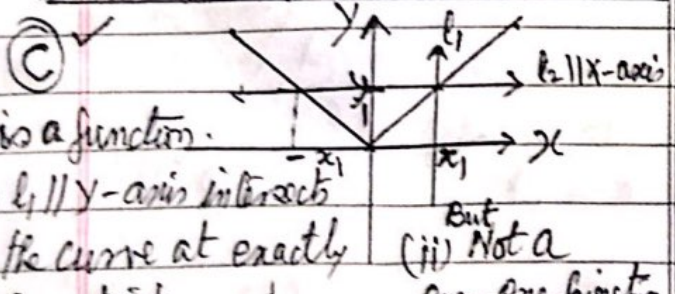 C ✓
Y l₁
l₂ || X-axis
y₁
is a function.
- x₁ x₁ x
l₁ || Y-axis intersects
But
the curve at exactly (ii) Not a